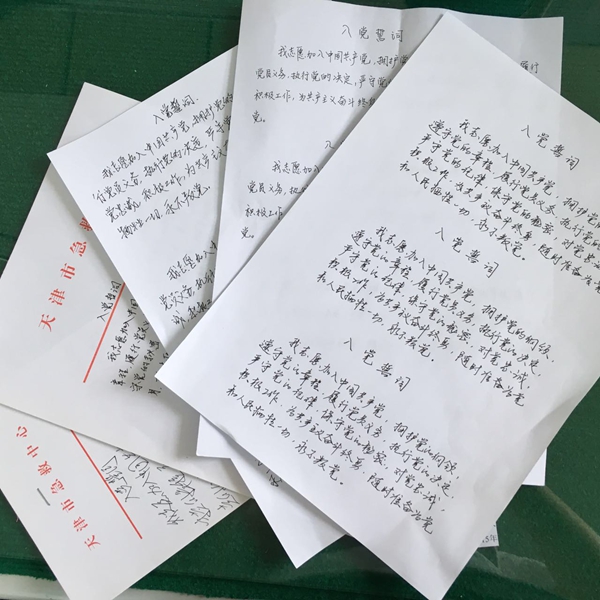 入党誓词
我志愿加入中国共产党,拥护党的纲领,
遵守党的章程,履行党员义务,执行党的决定,
严守党的纪律,保守党的秘密,对党忠诚,
积极工作,为共产主义奋斗终身,随时准备为党
和人民牺牲一切,永不叛党。
入党誓词
我志愿加入中国共产党,拥护党的纲领,
遵守党的章程,履行党员义务,执行党的决定,
严守党的纪律,保守党的秘密,对党忠诚,
积极工作,为共产主义奋斗终身,随时准备为党
和人民牺牲一切,永不叛党。
入党誓词
我志愿加入中国共产党,拥护党的纲领,
遵守党的章程,履行党员义务,执行党的决定,
严守党的纪律,保守党的秘密,对党忠诚,
积极工作,为共产主义奋斗终身,随时准备为党
和人民牺牲一切,永不叛党。
入党誓词
我志愿加入中国共产党,拥护党
履行
党员义务,执行党的决定,严守党
积极工作,为共产主义奋斗终身
党。
入
我志愿加入
党员义务,执
积极工作
党。
入党誓词
我志愿加入中国共产党,拥护党的
行党员义务,执行党的决定,严守党
党忠诚,积极工作,为共产主义
牺牲一切,永不叛党
我志愿加入中
天津市急救
入党誓词
我志愿加入中国
章程,履行党
天津市急救中心